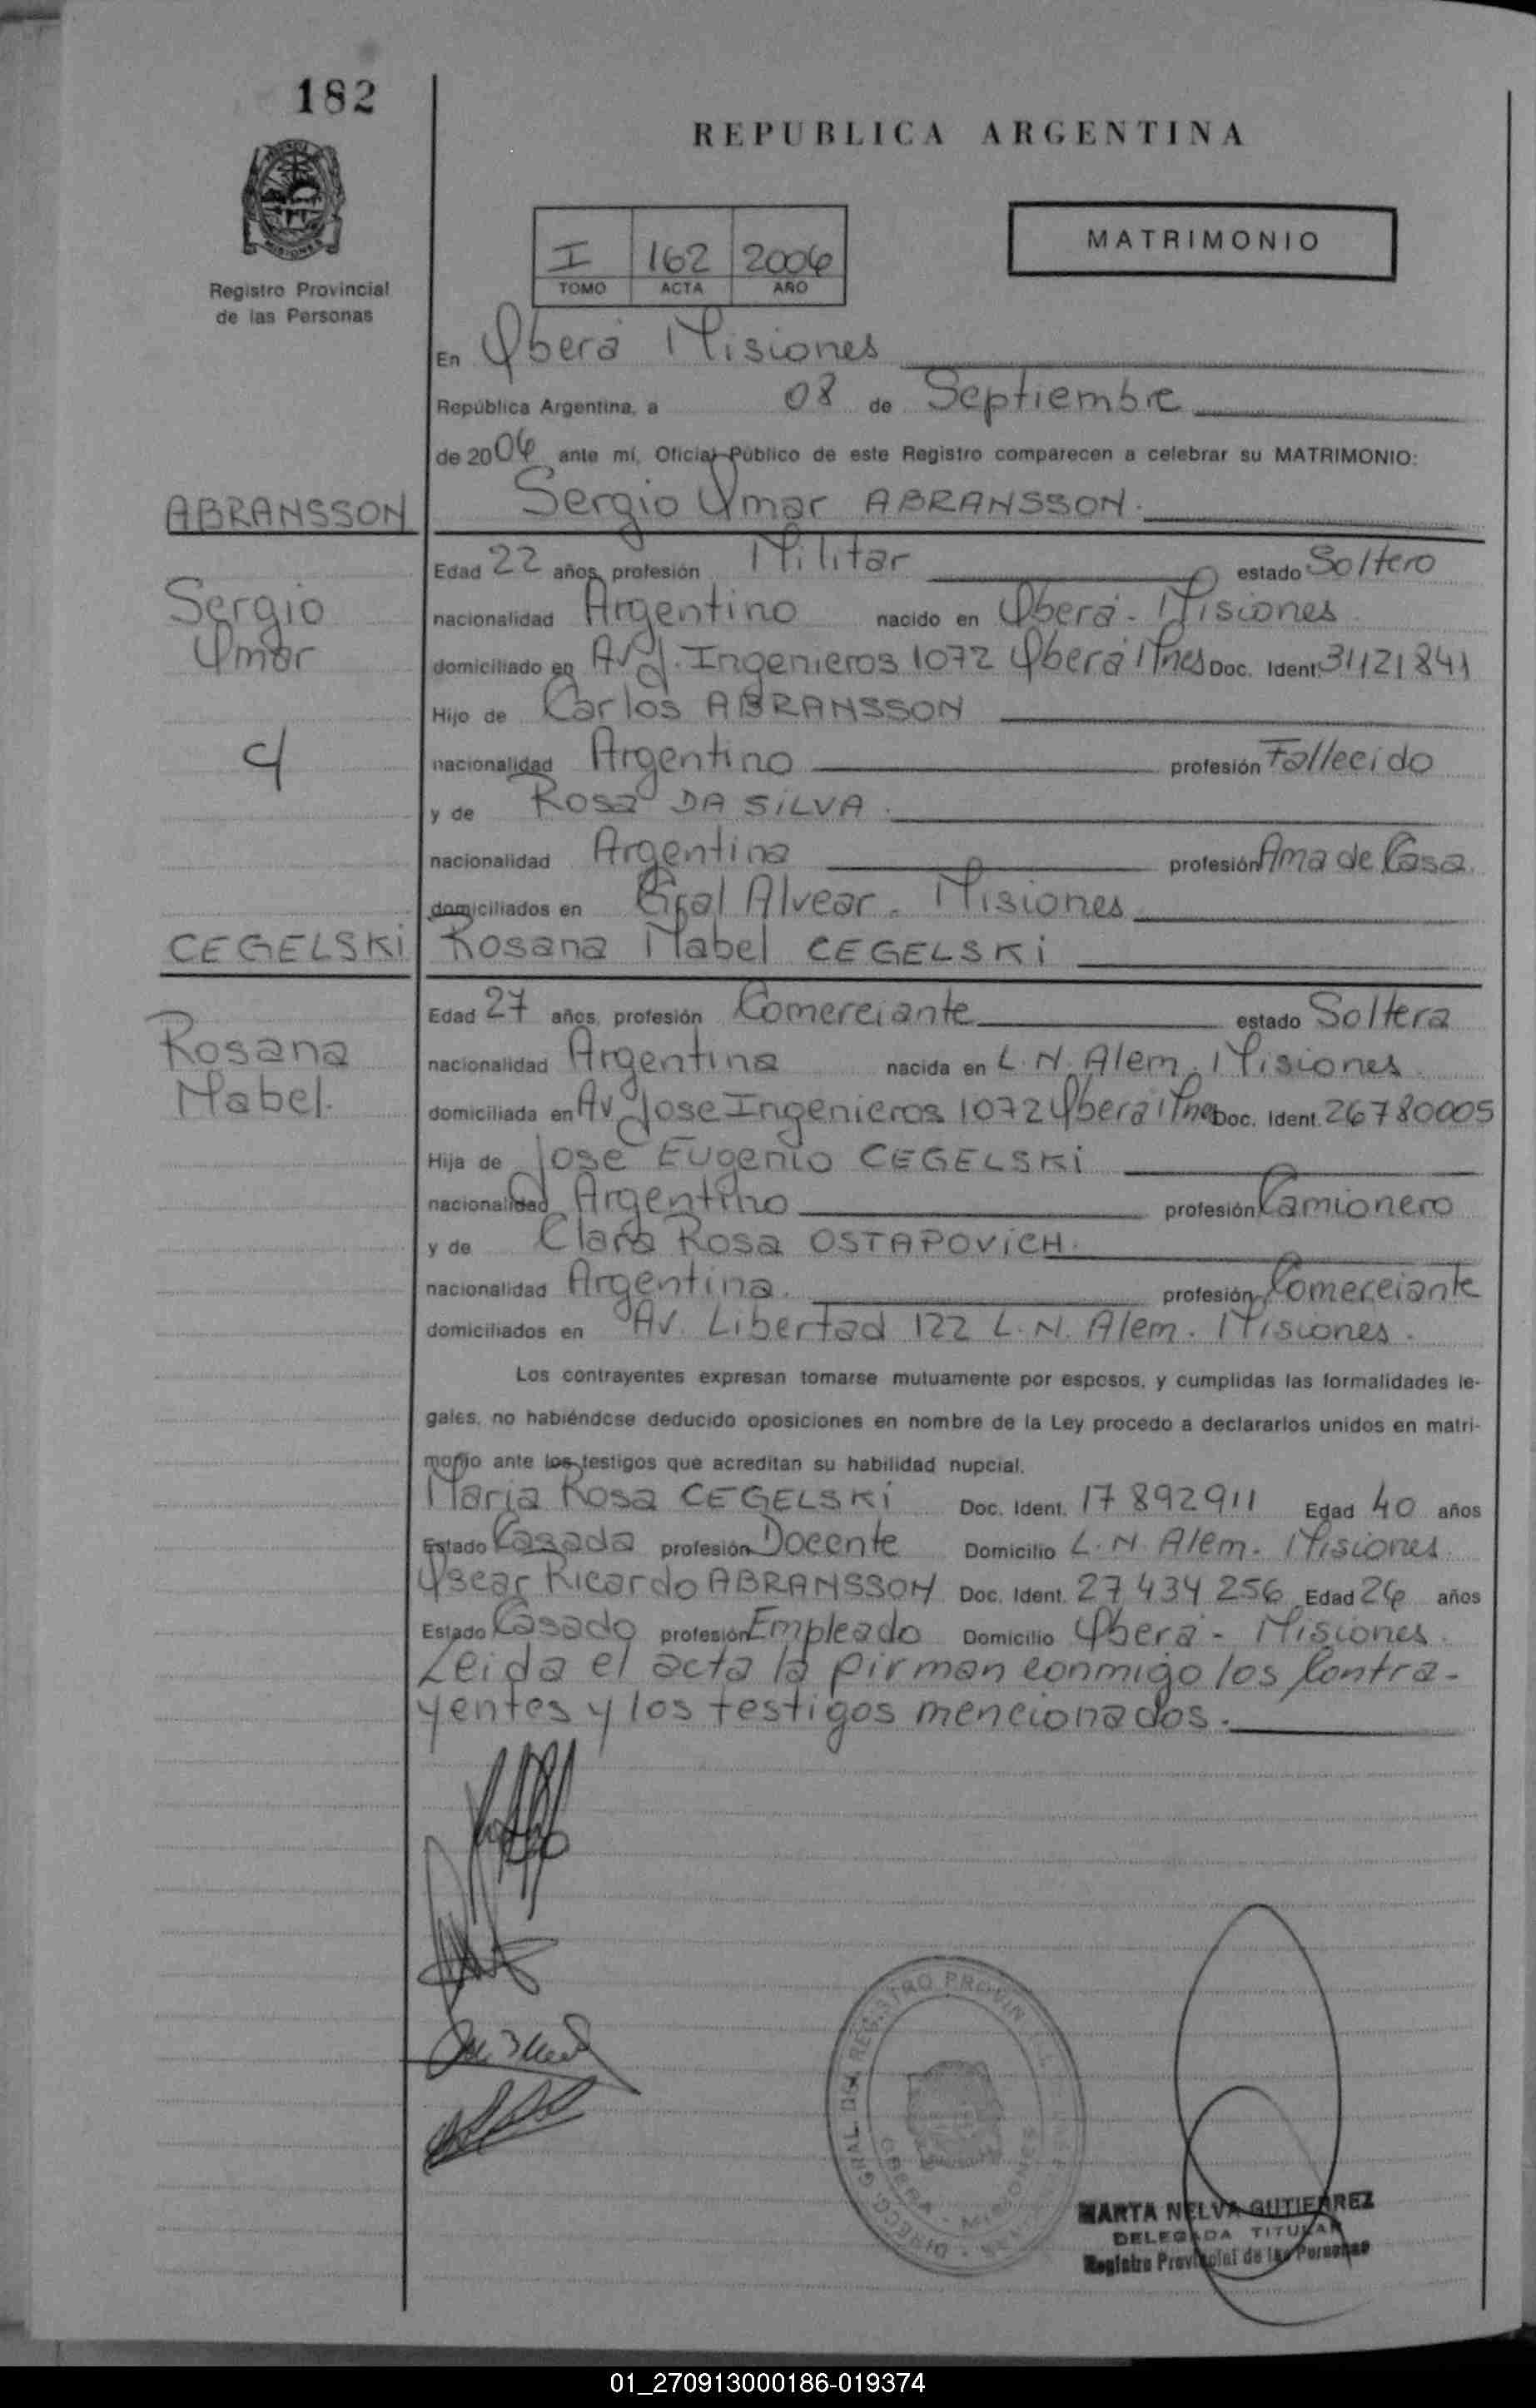 182
REPUBLICA ARGENTINA
MISIONES
Registro Provincial
de las Personas
I 162 2006
TOMO ACTA AÑO
MATRIMONIO
En Oberá Misiones
República Argentina, a 08 de Septiembre
de 2006 ante mí, Oficial Público de este Registro comparecen a celebrar su MATRIMONIO:
ABRANSSON Sergio Omar ABRANSSON.
Edad 22 años, profesión Militar estado Soltero
Sergio nacionalidad Argentino nacido en Oberá - Misiones
Omar domiciliado en Av J. Ingenieros 1072 Oberá Mnes Doc. Ident. 31121841
Hijo de Carlos ABRANSSON
c/ nacionalidad Argentino profesión Fallecido
y de Rosa DA SILVA.
nacionalidad Argentina profesión Ama de Casa
domiciliados en Gral Alvear - Misiones
CEGELSKi Rosana Mabel CEGELSKi
Edad 27 años, profesión Comerciante estado Soltera
Rosana nacionalidad Argentina nacida en L. N. Alem. Misiones
Mabel. domiciliada en Av Jose Ingenieros 1072 Oberá Mnes Doc. Ident. 26780005
Hija de José Eugenio CEGELSKi
nacionalidad Argentino profesión Camionero
y de Clara Rosa OSTAPOViCH.
nacionalidad Argentina. profesión Comerciante
domiciliados en Av. Libertad 122 L. N. Alem. Misiones.
Los contrayentes expresan tomarse mutuamente por esposos, y cumplidas las formalidades le-
gales, no habiéndose deducido oposiciones en nombre de la Ley procedo a declararlos unidos en matri-
monio ante los testigos que acreditan su habilidad nupcial.
Maria Rosa CEGELSKi Doc. Ident. 17892911 Edad 40 años
Estado Casada profesión Docente Domicilio L. N. Alem. Misiones
Oscar Ricardo ABRANSSON Doc. Ident. 27434256 Edad 26 años
Estado Casado profesión Empleado Domicilio Oberá - Misiones.
Leida el acta la firman conmigo los Contra-
yentes y los testigos mencionados.
OBERA - MISIONES
MARTA NELVA GUTIERREZ
DELEGADA TITULAR
Registro Provincial de las Personas
01_270913000186-019374